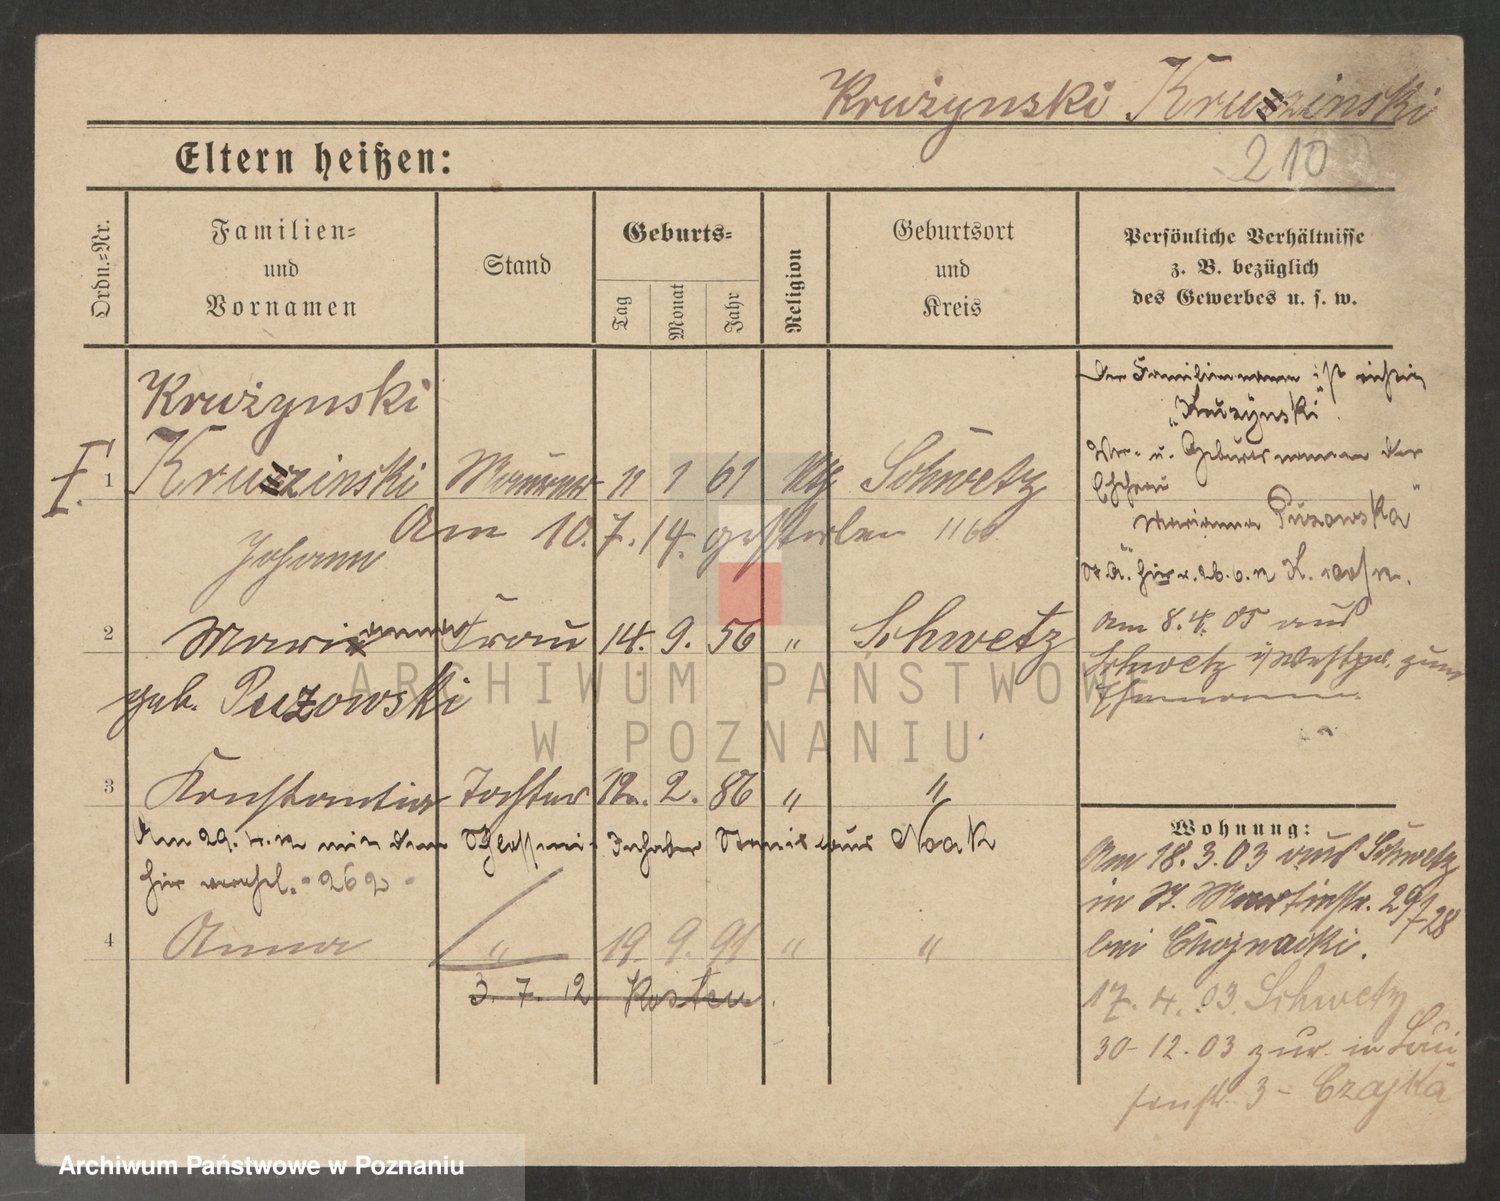 Krużynski Kruzinski
210
Eltern heißen:
Ordn.-Nr.
Familien-
und
Vornamen
Stand
Geburts-
Tag
Monat
Jahr
Religion
Geburtsort
und
Kreis
Persönliche Verhältnisse
z. B. bezüglich
des Gewerbes u. s. w.
Krużynski
1 Kruzinski Maurer 11 1 61 Kth Schwetz
Am 10. 7. 14. gestorben 1160
Johann
2 Marianna Frau 14. 9. 56 " Schwetz
geb. Puzowski
3 Konstantia Tochter 12. 2. 86 " "
Am 29. 4. mit dem Inhaber Stanislaus Noak
hier verehel. 262
4 Anna " 19. 9. 91 " "
3. 7. 12 Kosten.
Der Familienname ist richtig
„Kruzynski".
Vor- u. Geburtsnamen der
Ehefrau
Marianna Puzowska"
St. A. hier v.
am 8. 4. 05 aus
Schwetz i/Westpr. zum
Ehemann.
Wohnung:
Am 18. 3. 03 aus Schwetz
in St. Martinstr. 29/728
bei Chojnacki.
17. 4. 03. Schwetz
30-12.03 zur. in Loui
senstr. 3 - Czajka
ARCHIWUM PAŃSTWOWE
W POZNANIU
Archiwum Państwowe w Poznaniu